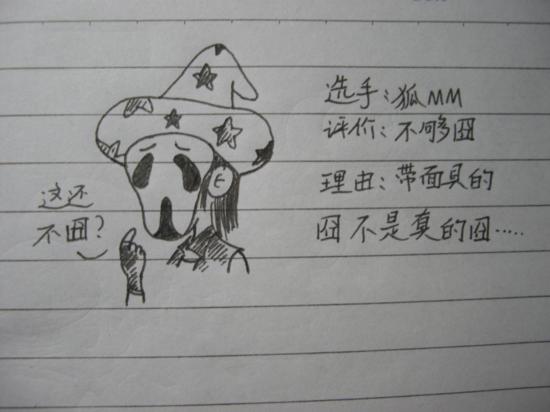 选手:狐MM
评价:不够囧
理由:带面具的
囧不是真的囧.....
这还
不囧?